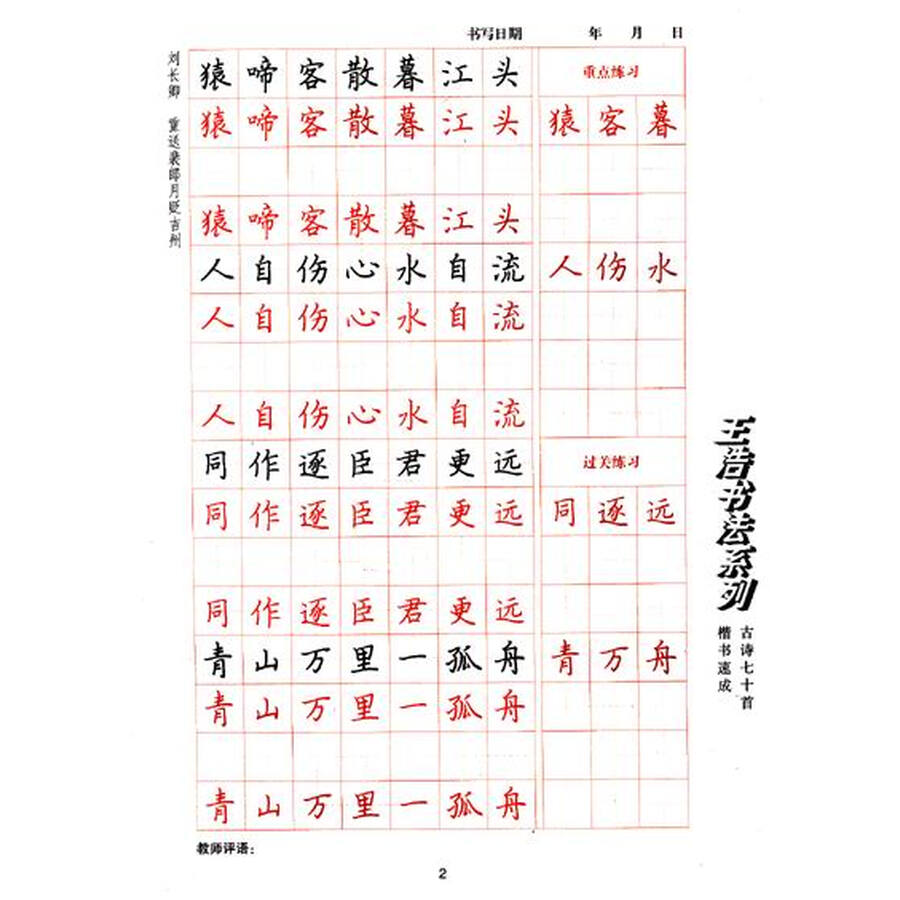 书写日期 年 月 日
刘长卿 重送裴郎月贬吉州
猿啼客散暮江头 重点练习
猿啼客散暮江头 猿客暮
猿啼客散暮江头
人自伤心水自流 人伤水
人自伤心水自流
人自伤心水自流
同作逐臣君更远 过关练习
同作逐臣君更远 同逐远
同作逐臣君更远
青山万里一孤舟 青万舟
青山万里一孤舟
青山万里一孤舟
王浩书法系列
古诗七十首
楷书速成
教师评语：
2